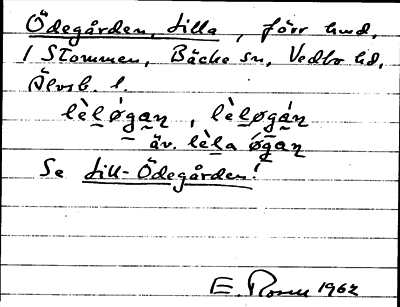 Ödegården, Lilla, förr lund,
1 Stommen, Bäcke sn, Vedbo hd,
Älvsb. l.
lèl ǿgan̥, lèløgán̥
äv. lèla ǿgan̥
Se Lill-Ödegården!
E. Rosen 1962